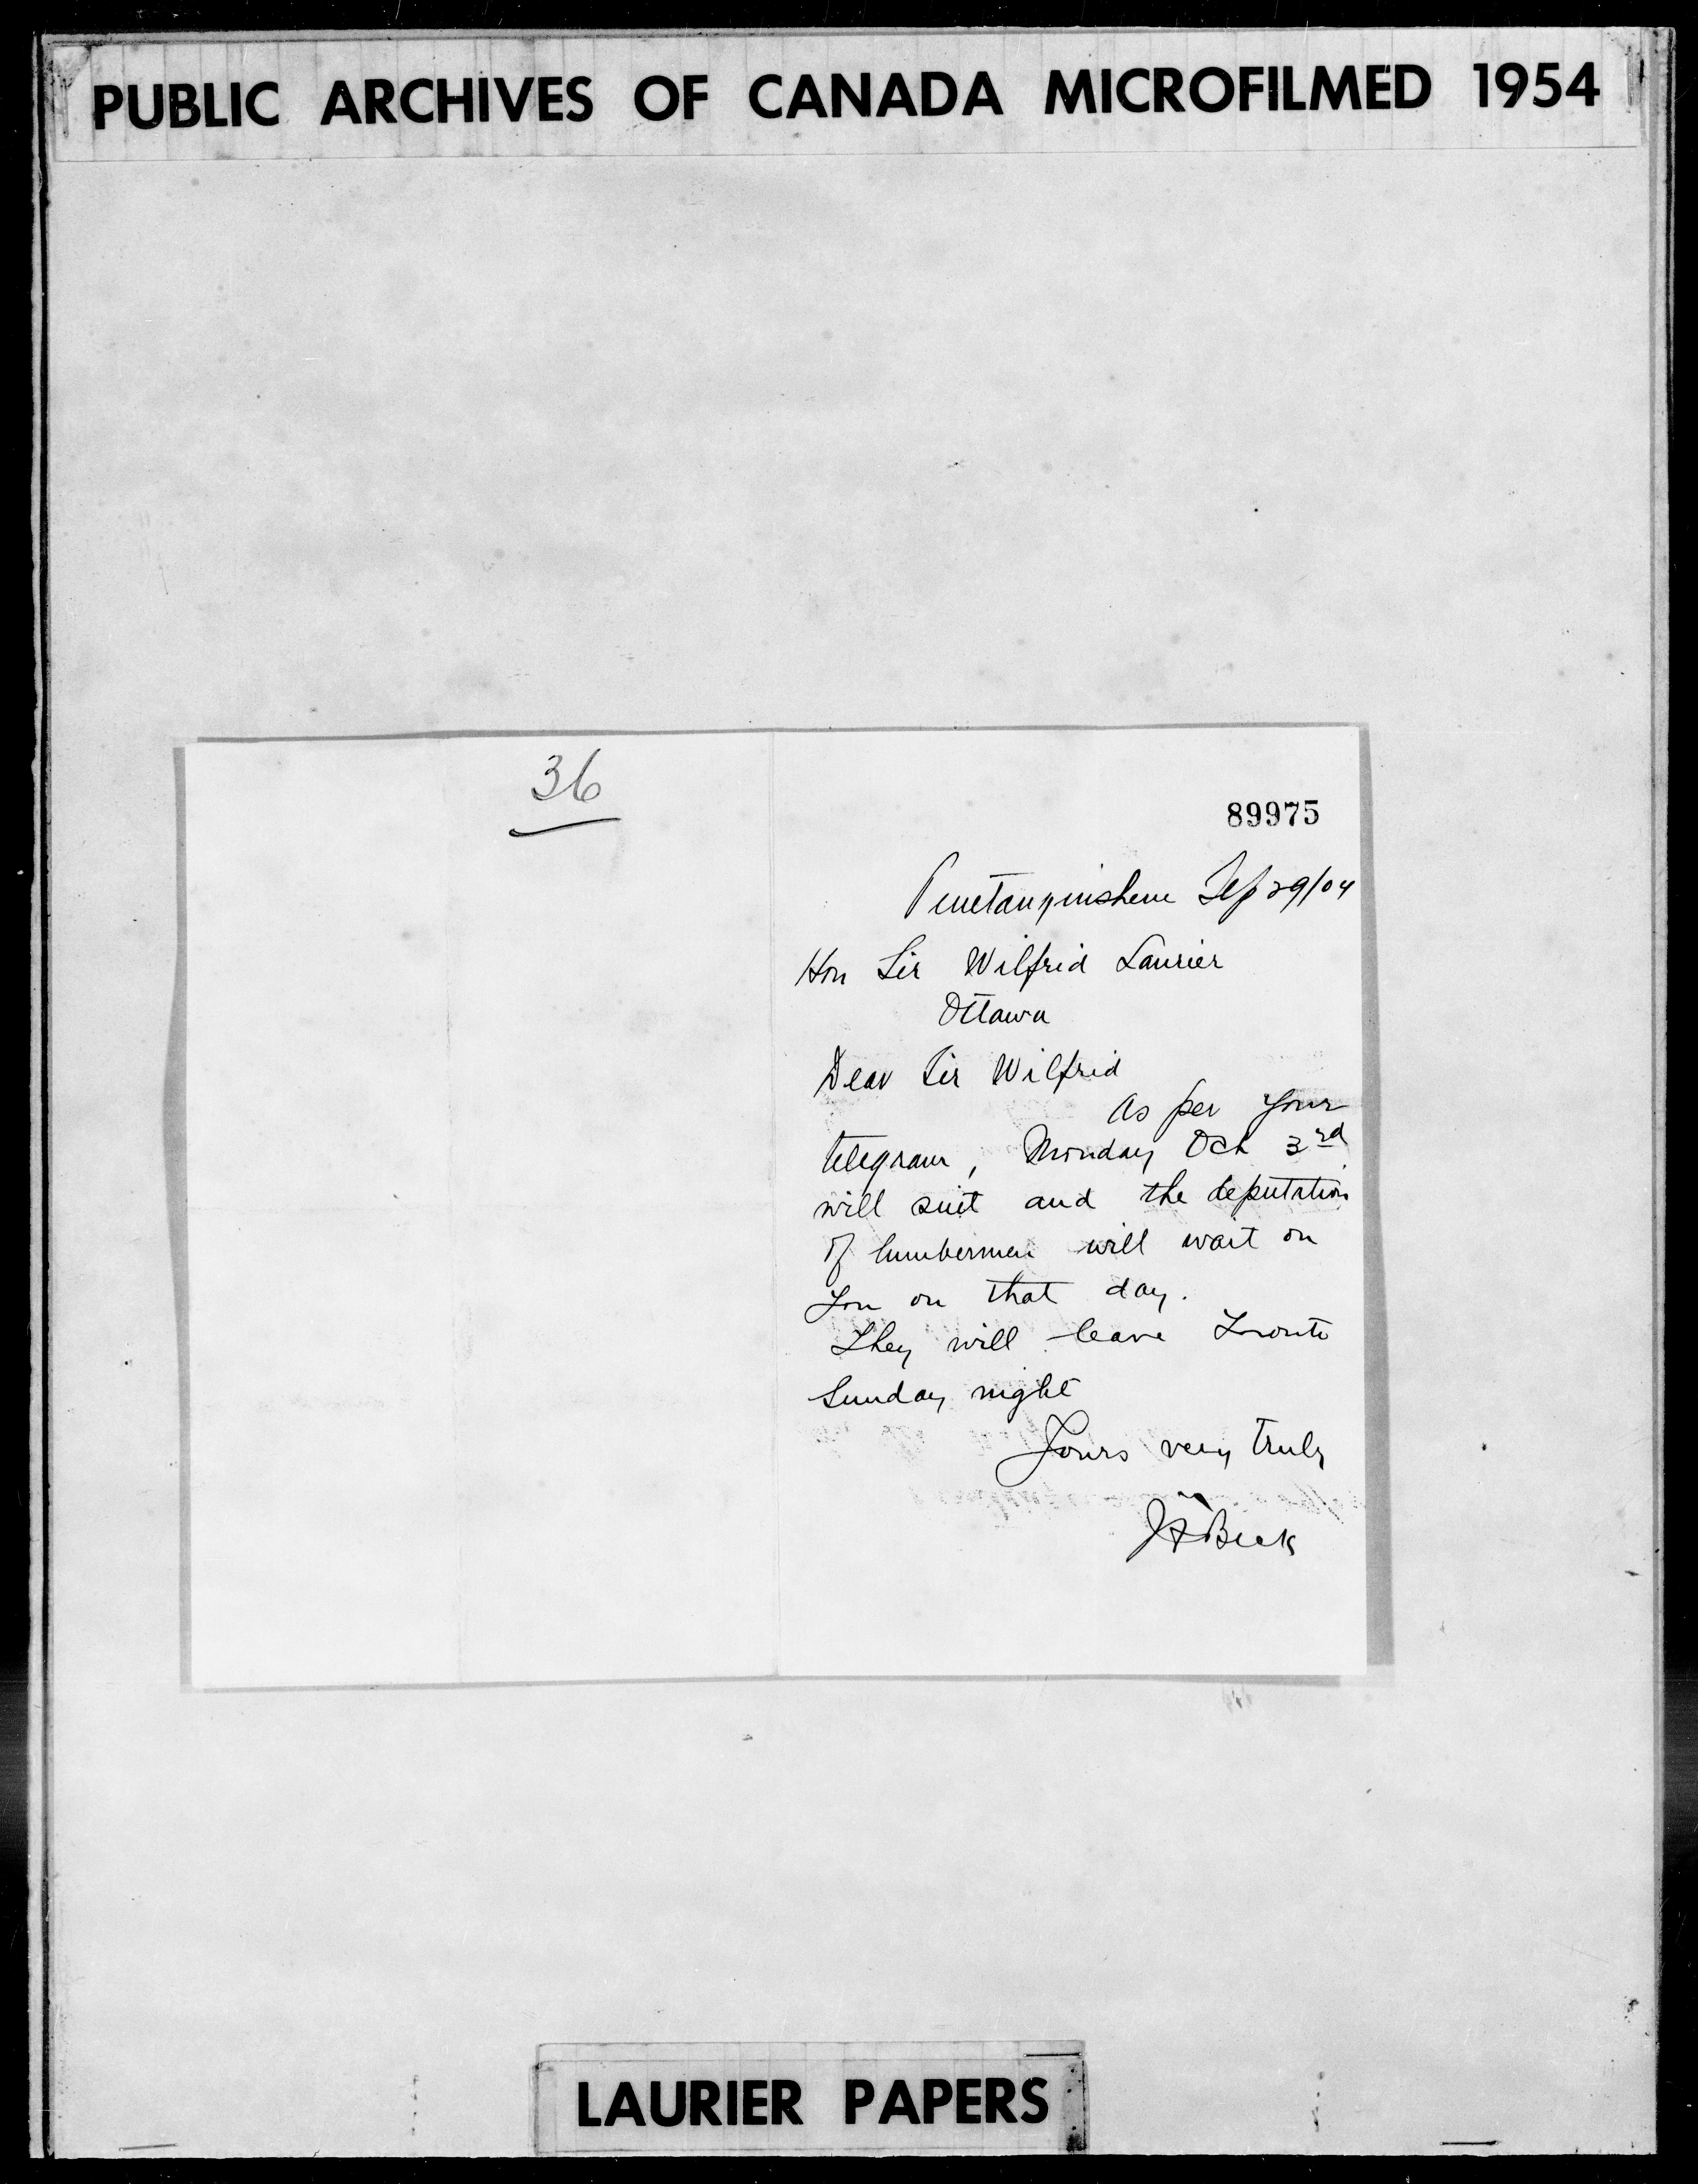 PUBLIC ARCHIVES OF CANADA MICROFILMED 1954
36
89975
Penetanguishene Sep 29/04
Hon Sir Wilfrid Laurier
Ottawa
Dear Sir Wilfrid
As per your
telegram, Monday Oct 3rd
will suit and the deputation
of lumbermen will wait on
you on that day.
They will leave Toronto
Sunday night
Yours very truly
Beck
LAURIER PAPERS